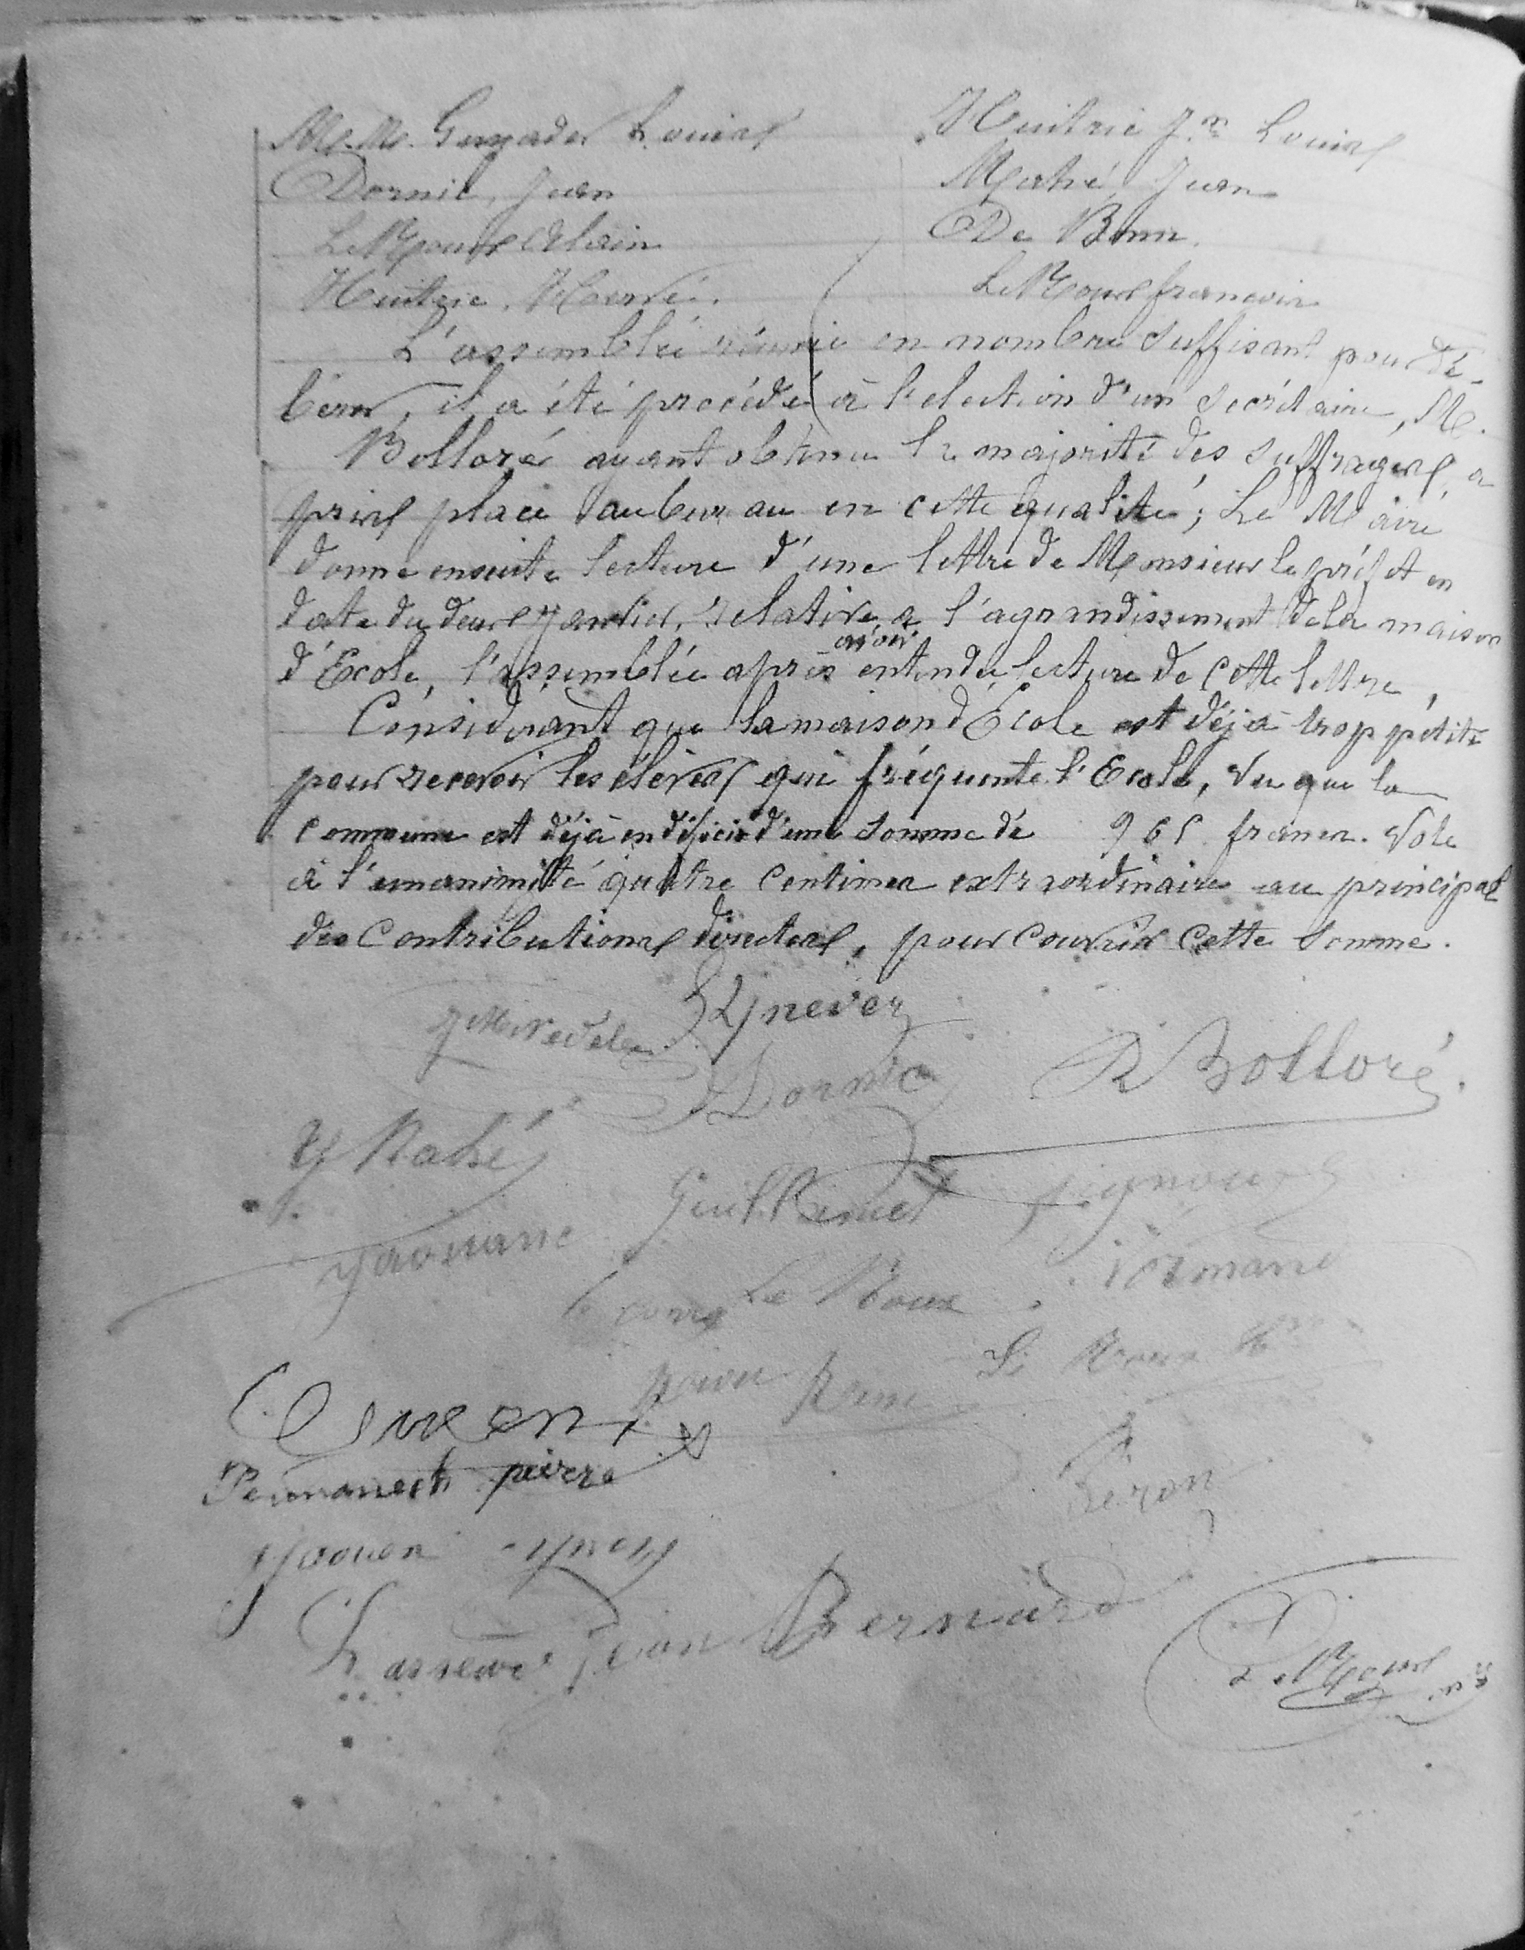 M.M. Guyader Louis
Dornic, Jean
Le Roux Alain
Huitric, Hervé.
Huitric Jn Louis
Mahé, Jean
De Bonn
Le Roux francois
L'assemblée réunie en nombre suffisant pour dé-
libérer, il a été procédé à l'election d'un secrétaire, M.
Bolloré ayant obtenu la majorité des suffrages, a
pris place au bureau en cette qualité; Le Maire
donne ensuite lecture d'une lettre de Monsieur le préfet en
date du deux janvier, relative a l'agrandissement de la maison
d'Ecole, l'assemblée après avoir entendu lecture de cette lettre,
Considérant que la maison d'École est déjà trop petite
pour recevoir les élèves qui fréquente l'Ecole, vu que la
commune est déjà en déficit d'une somme de 965 francs. Vote
à l'unanimité quatre centimes extraordinaire au principal
des Contributions directes, pour couvrir cette somme.
Dornic
R Bolloré
Y Mahé
Guillemet
Yaouanc
Le Roux
Normand
Le Roux
Péron
pierre
Yaouen
Lasseure Jean Bernard
Le Roux